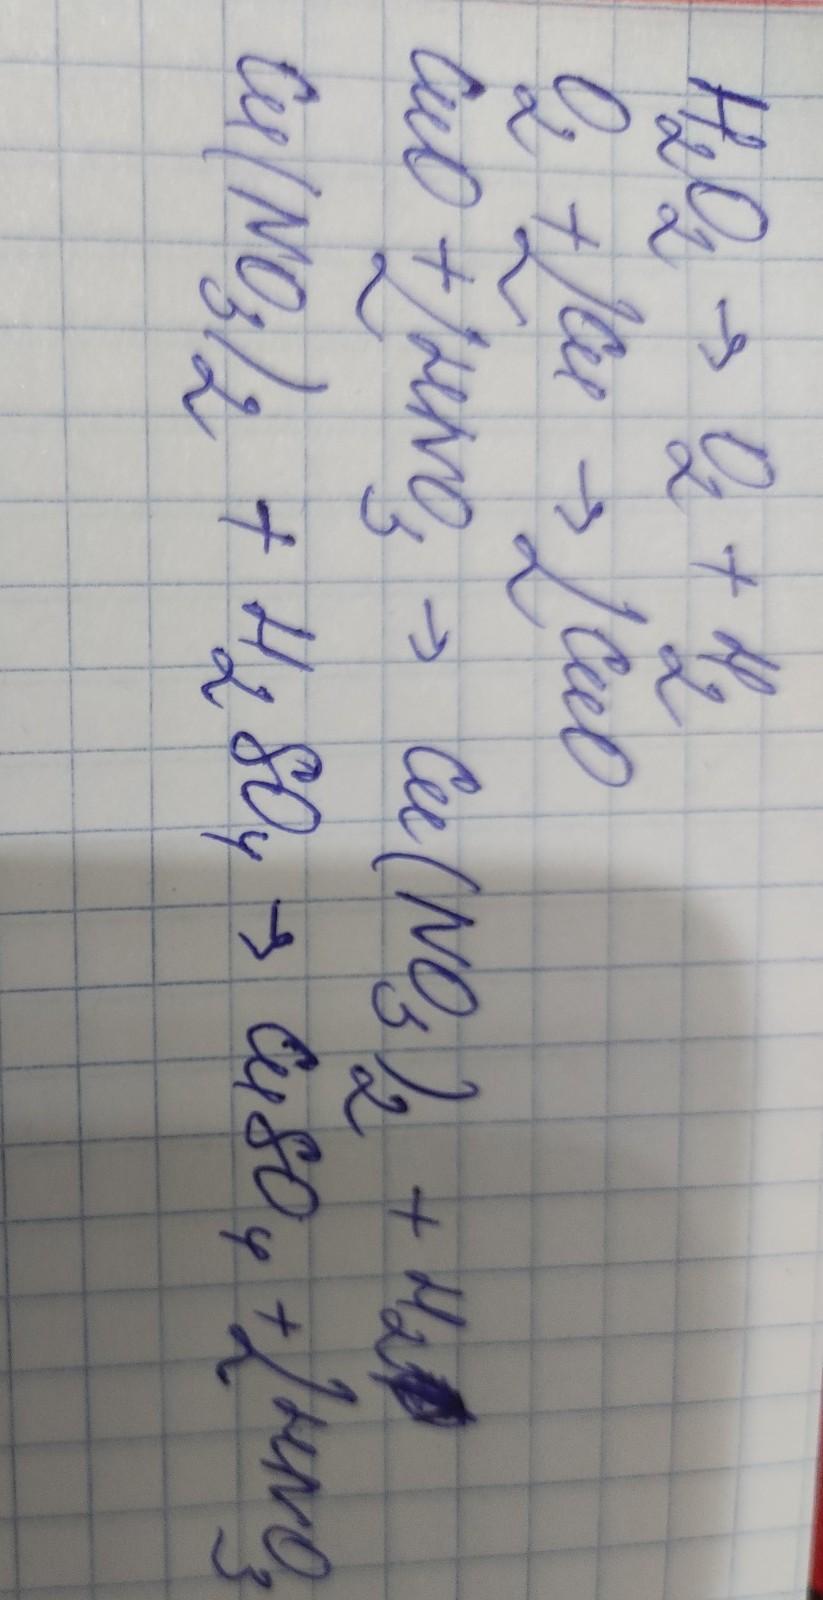 H2O2 → O2 + H2
O2 + 2Cu → 2CuO
CuO + 2HNO3 → Cu(NO3)2 + H2
Cu(NO3)2 + H2SO4 → CuSO4 + 2HNO3